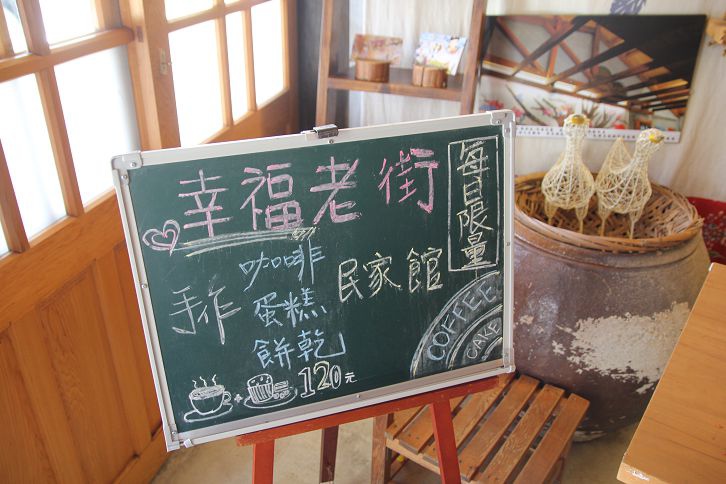 幸福老街
每日限量
民家館
手作
咖啡
蛋糕
餅乾
120元
COFFEE
CAKE